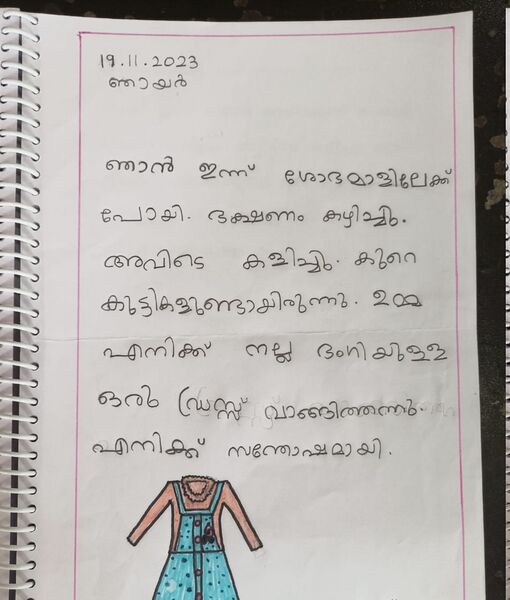 19.11.2023
ഞായർ
ഞാൻ ഇന്ന് ശോഭമാളിലേക്ക്
പോയി. ഭക്ഷണം കഴിച്ചു.
അവിടെ കളിച്ചു. കുറെ
കുട്ടികളുണ്ടായിരുന്നു. ഉമ്മ
എനിക്ക് നല്ല ഭംഗിയുള്ള
ഒരു ഡ്രസ്സ് വാങ്ങിത്തന്നു.
എനിക്ക് സന്തോഷമായി.